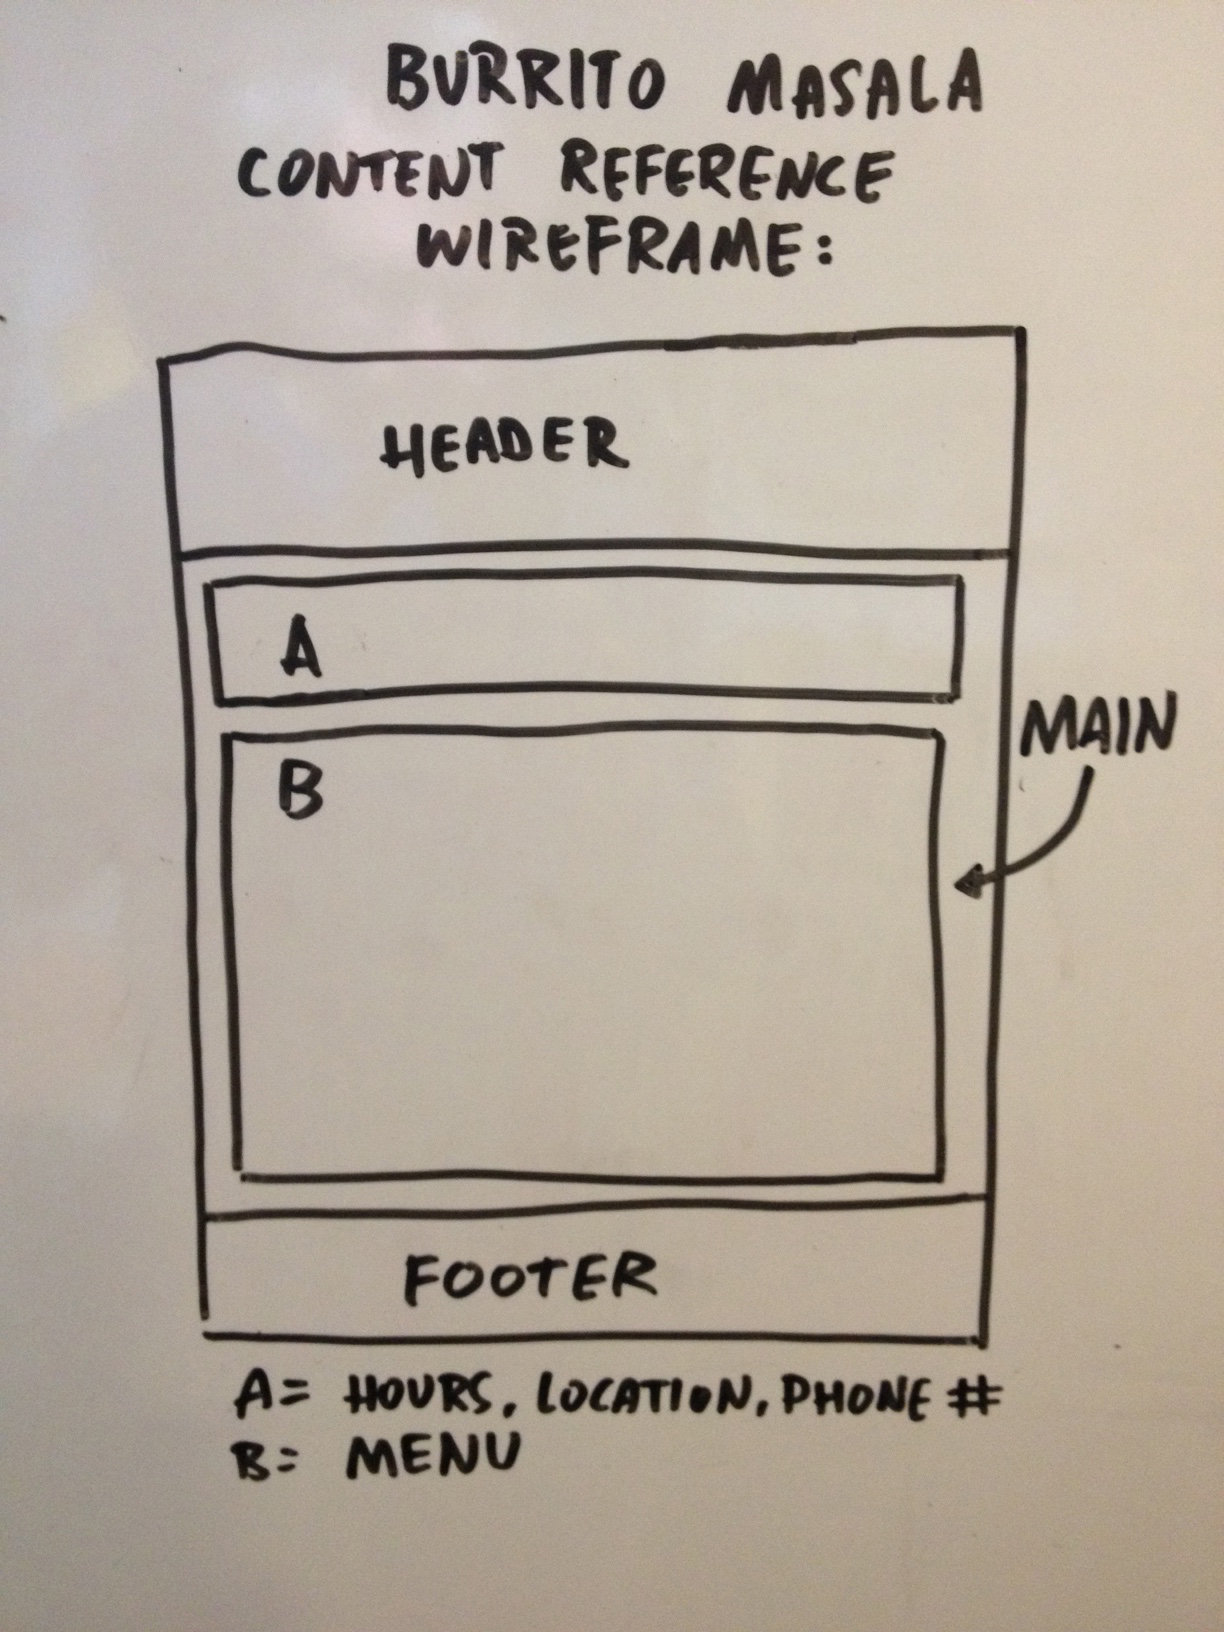 BURRITO MASALA
CONTENT REFERENCE
WIREFRAME:
HEADER
A
B
MAIN
FOOTER
A= HOURS, LOCATION, PHONE #
B= MENU